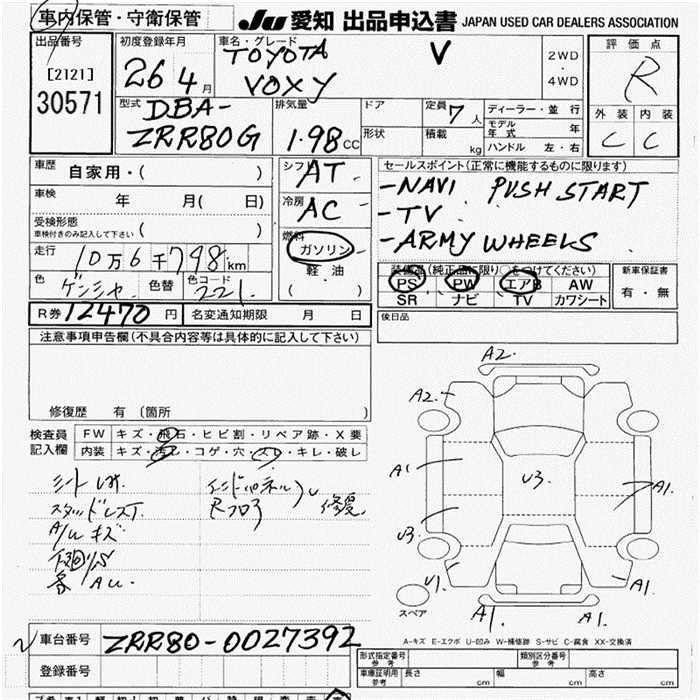 車内保管・守衛保管
JU 愛知 出品申込書 JAPAN USED CAR DEALERS ASSOCIATION
出品番号
[2121]
30571
初度登録年月
26 4月
車名・グレード
TOYOTA V
VOXY
2WD
・
4WD
評価点
R
外装 内装
C C
型式
DBA-
ZRR80G
排気量
1.98 CC
ドア
形状
定員 7人
積載 kg
ディーラー・並行
モデル年式 年
ハンドル 左・右
車歴 自家用・( )
車検 年 月( 日)
受検形態
車検付きのみ記入して下さい ( )
走行 10万6千798km
色 色替 色コード 221
シフト AT
冷房 AC
燃料
ガソリン
・
軽油
( )
セールスポイント(正常に機能するものに限ります)
-NAVI PUSH START
-TV
-ARMY WHEELS
装備品(純正品に限り○をつけてください)
PS PW エアB AW
SR ナビ TV カワシート
新車保証書
有・無
後日品
R券 12470円 名変通知期限 月 日
注意事項申告欄(不具合内容等は具体的に記入して下さい)
修復歴 有(箇所 )
検査員
記入欄
FW キズ・飛石・ヒビ割・リペア跡・X要
内装 キズ・汚レ・コゲ・穴・スレ・キレ・破レ
A/W キズ
修復
A2.
A2.
A1
U3.
A1.
U3.
U1.
A1.
A1.
A1.
スペア
A-キズ E-エクボ U-凹み W-補修跡 S-サビ C-腐食 XX-交換済
車台番号 ZRR80-0027392
登録番号
形式指定番号 参考
類別区分番号 参考
車庫証明用 参考 長さ cm 幅 cm 高さ cm